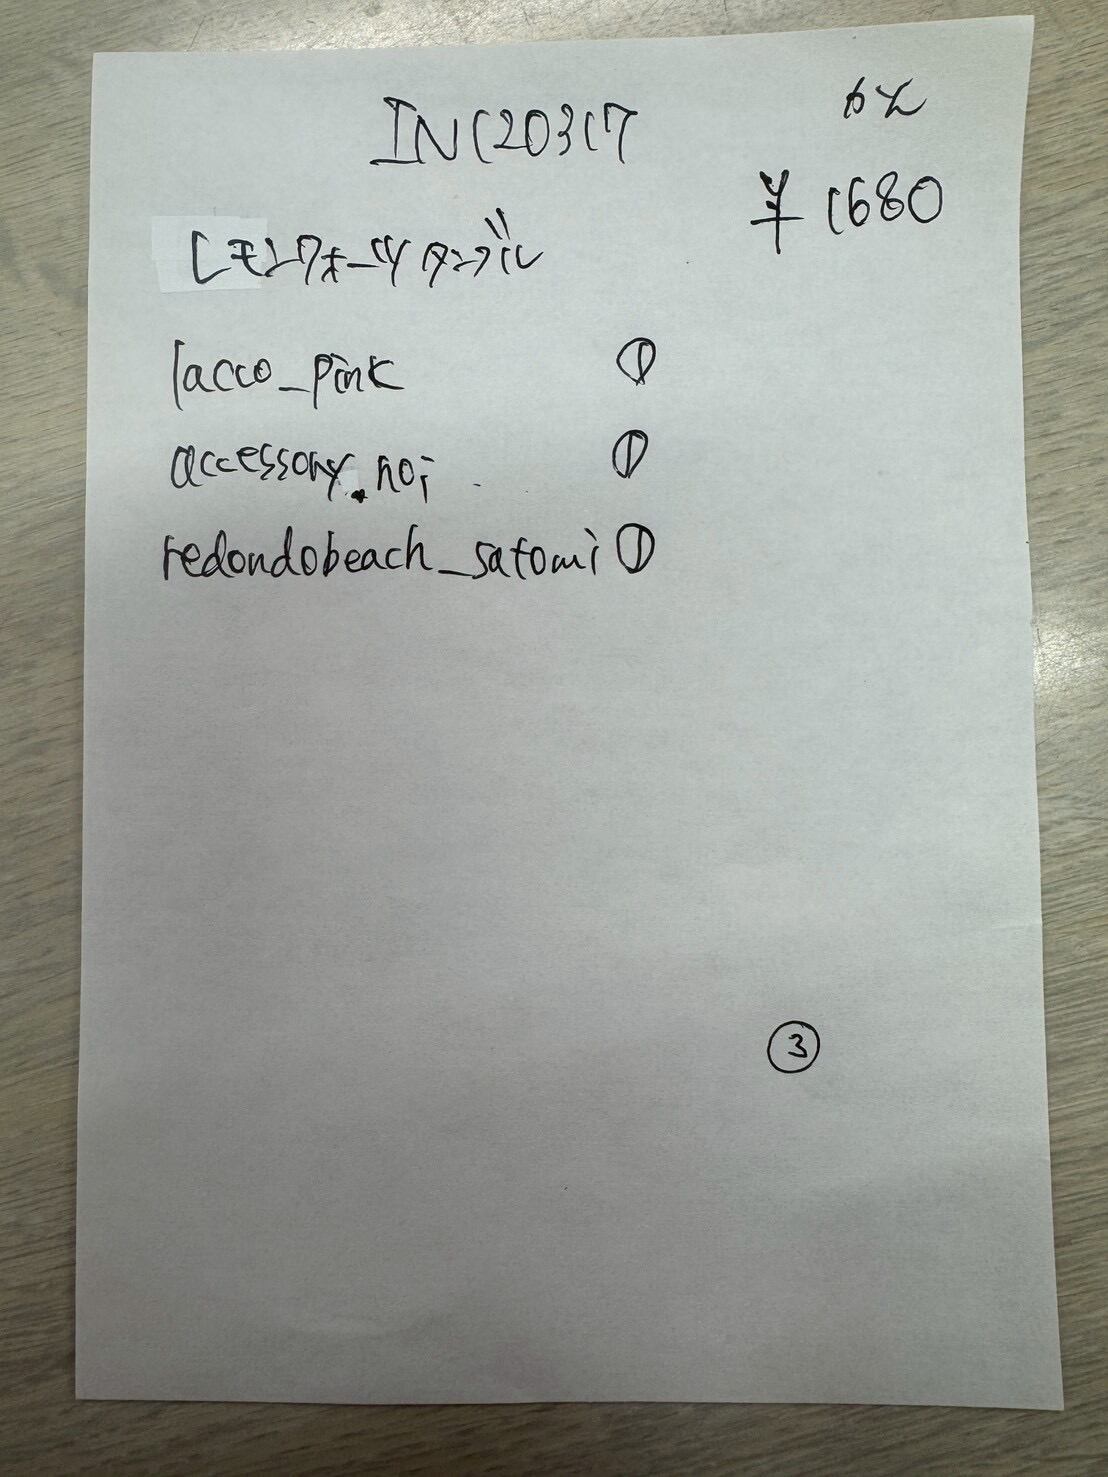 INC20317
¥1680
レモンクォーツタンブル
lacco_pink ①
accessory.noi ①
redondobeach_satomi ①
③